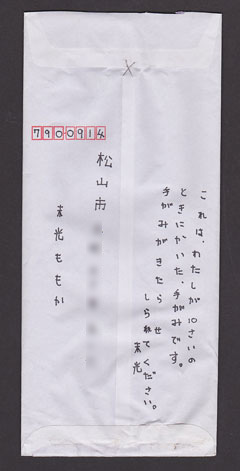 ×
7900914
松山市
末光ももか
これは、わたしが10さいの
ときにかいた、手がみです。
手がみがきたら せ
しられてください。
末光